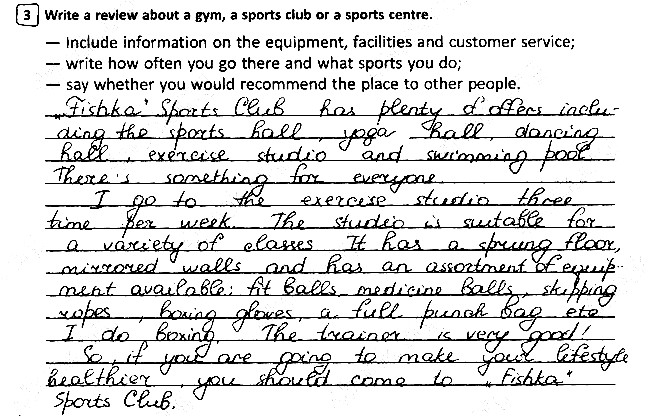 3 Write a review about a gym, a sports club or a sports centre.
— Include information on the equipment, facilities and customer service;
— write how often you go there and what sports you do;
— say whether you would recommend the place to other people.
„Fishka" Sports Club has plenty of offers inclu-
ding the sports hall, yoga hall, dancing
hall, exercise studio and swimming pool
There's something for everyone
I go to the exercise studio three
time per week. The studio is suitable for
a variety of classes It has a sprung floor,
mirrored walls and has an assortment of equip-
ment available: fit balls, medicine balls, skipping
ropes, boxing gloves, a full punch bag etc
I do boxing. The trainer is very good!
So, if you are going to make your lifestyle
healthier, you should come to „Fishka"
Sports Club.